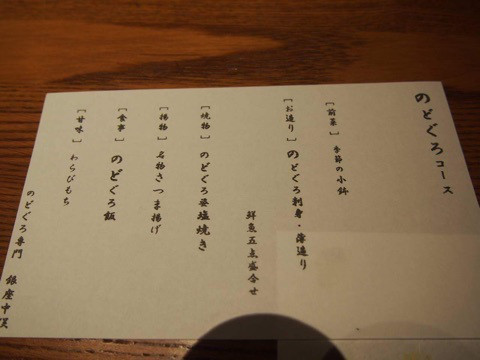 のどぐろコース
［前菜］季節の小鉢
［お造り］のどぐろ刺身・薄造り
鮮魚五点盛合せ
［焼物］のどぐろ姿塩焼き
［揚物］名物さつま揚げ
［食事］のどぐろ飯
［甘味］わらびもち
のどぐろ専門 銀座中俣